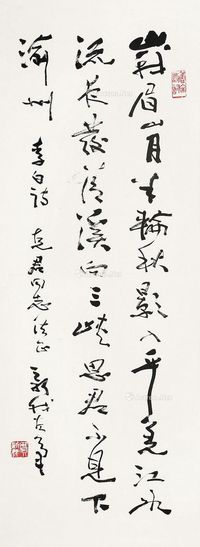 峩眉山月半輪秋影入平羌江水
流夜發清溪向三峽思君不見下
渝州 李白詩 君同志法正